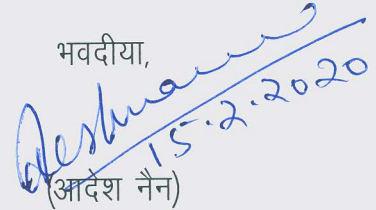 भवदीया,
15.2.2020
(आदेश नैन)